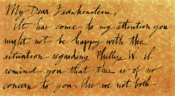 My Dear Frankenstein,
It has come to my attention you
might not be happy with the
situation regarding Phillip W. I
remind you that this is of no
concern to you. As we not both